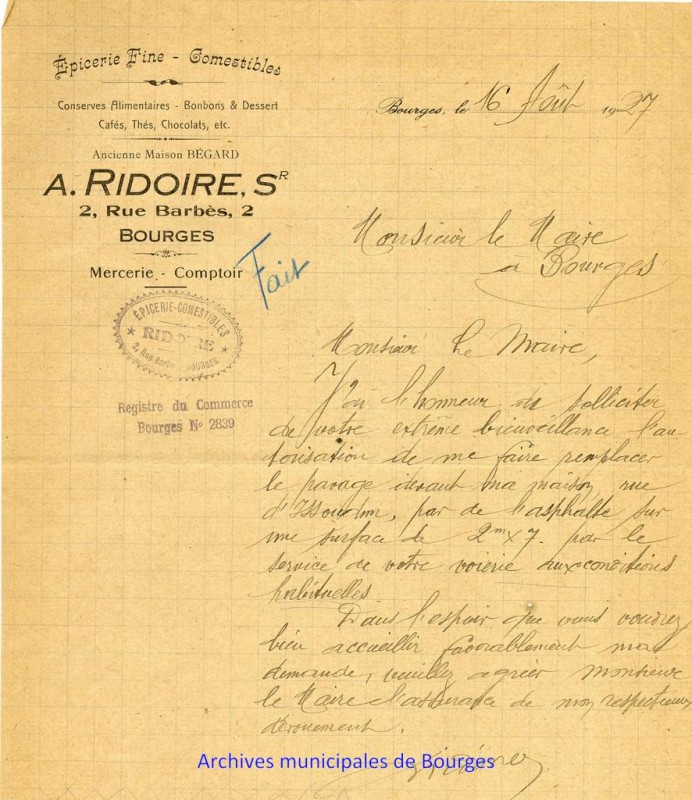 Épicerie Fine - Comestibles
Conserves Alimentaires - Bonbons & Dessert
Cafés, Thés, Chocolats, etc.
Ancienne Maison BÉGARD
A. RIDOIRE, SR
2, Rue Barbès, 2
BOURGES
Mercerie - Comptoir
Fait
ÉPICERIE-COMESTIBLES
RIDOIRE
2, Rue Barbès BOURGES
Registre du Commerce
Bourges No 2839
Bourges, le 16 Août 1927
Monsieur le Maire
a Bourges
Monsieur Le Maire,
J'ai l'honneur de solliciter
de votre extrême bienveillance l'au-
torisation de me faire remplacer
le pavage devant ma maison, rue
d'Issoudun, par de l'asphalte sur
une surface de 2m x 7. par le
service de votre voierie aux conditions
habituelles.
Dans l'espoir que vous voudrez
bien accueillir favorablement ma
demande, veuillez agréer Monsieur
le Maire l'assurance de mon respectueux
dévouement.
Ridoire
Archives municipales de Bourges